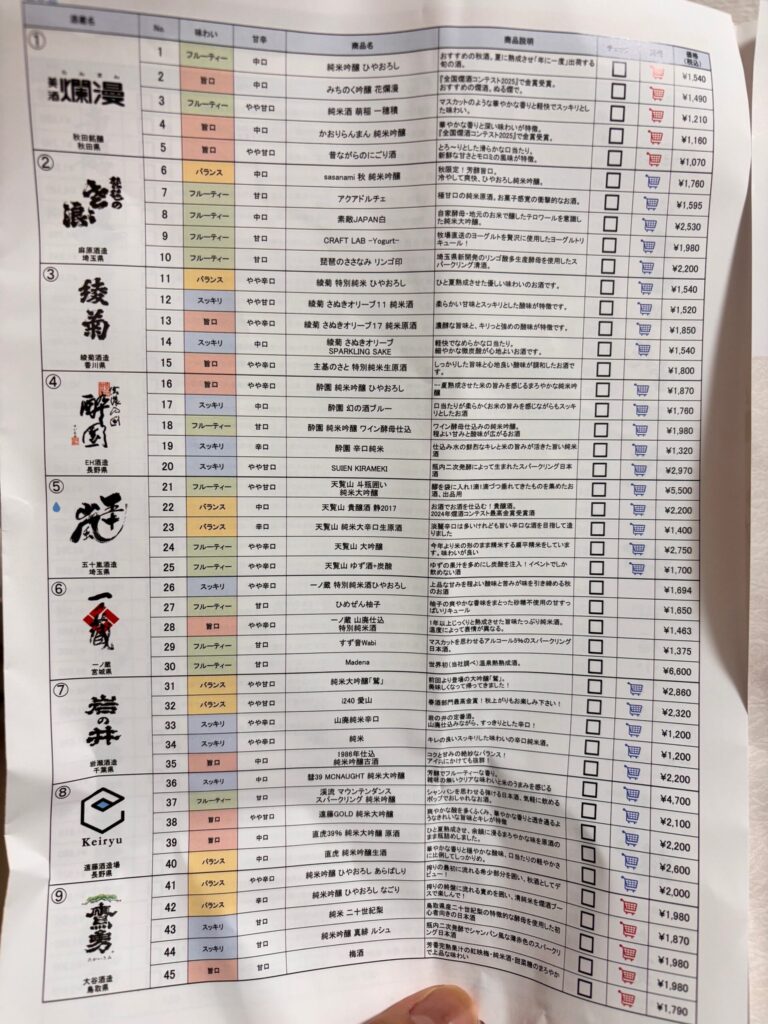 酒蔵名 No. 味わい 甘辛 商品名 商品説明 チェック 価格(税込)
① 美酒爛漫 秋田銘醸 秋田県
1 フルーティー 中口 純米吟醸 ひやおろし おすすめの秋酒。夏に熟成させ「年に一度」出荷する旬の酒。 ¥1,540
2 旨口 中口 みちのく吟醸 花爛漫 『全国燗酒コンテスト2025』で金賞受賞。おすすめの燗酒。ぬる燗で。 ¥1,490
3 フルーティー やや甘口 純米酒 萌稲 一穂積 マスカットのような華やかな香りと軽快でスッキリとした味わい。 ¥1,210
4 旨口 中口 かおりらんまん 純米吟醸 華やかな香りと深い味わいが特徴。『全国燗酒コンテスト2025』で金賞受賞。 ¥1,160
5 旨口 やや甘口 昔ながらのにごり酒 とろ～りとした滑らかな口当たり。新鮮な甘さとモロミの風味が特徴。 ¥1,070
② 琵琶のさゝ浪 麻原酒造 埼玉県
6 バランス 中口 sasanami 秋 純米吟醸 秋限定!芳醇旨口。冷やして爽快、ひやおろし純米吟醸。 ¥1,760
7 フルーティー 甘口 アクアドルチェ 極甘口の純米原酒。お菓子感覚の衝撃的なお酒。 ¥1,595
8 フルーティー 中口 素敵JAPAN白 自家酵母・地元のお米で醸したテロワールを意識した純米大吟醸。 ¥2,530
9 フルーティー 甘口 CRAFT LAB -Yogurt- 牧場直送のヨーグルトを贅沢に使用したヨーグルトリキュール! ¥1,980
10 フルーティー 甘口 琵琶のささなみ リンゴ印 埼玉県新開発のリンゴ酸多生産酵母を使用したスパークリング清酒。 ¥2,200
③ 綾菊 綾菊酒造 香川県
11 バランス やや辛口 綾菊 特別純米 ひやおろし ひと夏熟成させた優しい味わいのお酒です。 ¥1,540
12 スッキリ やや甘口 綾菊 さぬきオリーブ11 純米酒 柔らかい甘味とスッキリとした酸味が特徴です。 ¥1,520
13 旨口 やや辛口 綾菊 さぬきオリーブ17 純米原酒 濃醇な旨味と、キリっと強めの酸味が特徴です。 ¥1,850
14 スッキリ 中口 綾菊 さぬきオリーブ SPARKLING SAKE 軽快でなめらかな口当たり。細やかな微炭酸が心地よいお酒です。 ¥1,540
15 旨口 やや辛口 主基のさと 特別純米生原酒 しっかりした旨味と心地良い酸味が調和したお酒です。 ¥1,800
④ 信濃乃国 酔園 EH酒造 長野県
16 旨口 やや辛口 酔園 純米吟醸 ひやおろし 一夏熟成させた米の旨みを感じるまろやかな純米吟醸 ¥1,870
17 スッキリ 中口 酔園 幻の酒ブルー 口当たりが柔らかくお米の旨みを感じながらもスッキリとしたお酒 ¥1,760
18 フルーティー 甘口 酔園 純米吟醸 ワイン酵母仕込 ワイン酵母仕込みの純米吟醸。程よい甘みと酸味が広がるお酒 ¥1,980
19 スッキリ 辛口 酔園 辛口純米 仕込み水の鮮烈なキレと米の旨みが活きた旨い純米酒 ¥1,320
20 スッキリ やや甘口 SUIEN KIRAMEKI 瓶内二次発酵によって生まれたスパークリング日本酒 ¥2,970
⑤ 五十嵐 五十嵐酒造 埼玉県
21 フルーティー やや甘口 天覧山 斗瓶囲い 純米大吟醸 醪を袋に入れ1滴1滴づつ垂れてきたものを集めたお酒、出品用 ¥5,500
22 バランス 中口 天覧山 貴醸酒 静2017 お酒でお酒を仕込む!貴醸酒。2024年燗酒コンテスト最高金賞受賞酒 ¥2,200
23 バランス 辛口 天覧山 純米大辛口生原酒 淡麗辛口は多いけれども旨い辛口な酒を目指して造りました ¥1,400
24 フルーティー やや辛口 天覧山 大吟醸 今年より米の形のまま精米する扁平精米をしています。味わいが良い ¥2,750
25 フルーティー やや辛口 天覧山 ゆず酒+炭酸 ゆずの果汁を多めにし炭酸を注入!イベントでしか飲めない酒 ¥1,700
⑥ 一ノ蔵 一ノ蔵 宮城県
26 スッキリ やや辛口 一ノ蔵 特別純米酒ひやおろし 上品な甘みを程よい酸味と苦みが味を引き締める秋のお酒 ¥1,694
27 フルーティー 甘口 ひめぜん柚子 柚子の爽やかな香味をまとった砂糖不使用の甘ずっぱいリキュール ¥1,650
28 旨口 やや辛口 一ノ蔵 山廃仕込 特別純米酒 1年以上じっくりと熟成させた旨味たっぷり純米酒。温度によって表情が異なる。 ¥1,463
29 フルーティー 甘口 すず音Wabi マスカットを思わせるアルコール5%のスパークリング日本酒。 ¥1,375
30 フルーティー 甘口 Madena 世界初(当社調べ)温泉熱熟成酒。 ¥6,600
⑦ 岩の井 岩瀬酒造 千葉県
31 バランス やや甘口 純米大吟醸「鷲」 前回より登場の大吟醸「鷲」。美味しくなって帰ってきました! ¥2,860
32 バランス やや甘口 i240 愛山 春酒部門最高金賞!秋上がりもお楽しみ下さい! ¥2,320
33 スッキリ やや辛口 山廃純米辛口 岩の井の定番酒。山廃仕込みながら、すっきりとした辛口! ¥1,200
34 スッキリ やや辛口 純米 キレの良いスッキリした味わいの辛口純米酒。 ¥1,200
35 旨口 中口 1986年仕込 純米吟醸古酒 コクと甘みの絶妙なバランス!アイスにかけても抜群! ¥2,200
⑧ Keiryu 遠藤酒造場 長野県
36 スッキリ 中口 彗39 MCNAUGHT 純米大吟醸 芳醇でフルーティーな香り。雑味の無いクリアな味わいと米のうまみを感じる ¥4,700
37 フルーティー 甘口 渓流 マウンテンダンス スパークリング 純米吟醸 シャンパンを思わせる弾ける日本酒、気軽に飲めるポップでおしゃれなお酒。 ¥2,100
38 旨口 やや甘口 遠藤GOLD 純米大吟醸 爽やかな酸を多くふくみ、華やかな香りと透き通るようなきれいな旨味とキレが特徴 ¥2,200
39 旨口 中口 直虎39% 純米大吟醸 原酒 ひと夏熟成させ、余韻に浸るまろやかな味を原酒のまま瓶詰めしました。 ¥2,600
40 バランス 中口 直虎 純米吟醸生酒 華やかな香りと穏やかな酸味、口当たりの軽やかさに比例してしっかりめ。 ¥2,000
⑨ 鷹勇 たかいさみ 大谷酒造 鳥取県
41 バランス やや辛口 純米吟醸 ひやおろし あらばしり 搾りの最初に流れる希少部分を囲い、秋酒としてデビュー! ¥1,980
42 バランス 辛口 純米吟醸 ひやおろし なごり 搾りの終盤に流れる責めを囲い、清純米を燗酒ブースで楽しんで! ¥1,870
43 スッキリ 甘口 純米 二十世紀梨 鳥取県産二十世紀梨の特徴的な酵母を使用した初心者向きの日本酒 ¥1,980
44 スッキリ やや甘口 純米吟醸 真緋 ルシュ 瓶内二次発酵でシャンパン風な薄赤色のスパークリング日本酒 ¥1,980
45 旨口 甘口 梅酒 芳香完熟果汁の紅映梅・純米酒・甜菜糖のまろやかで上品な味わい ¥1,790